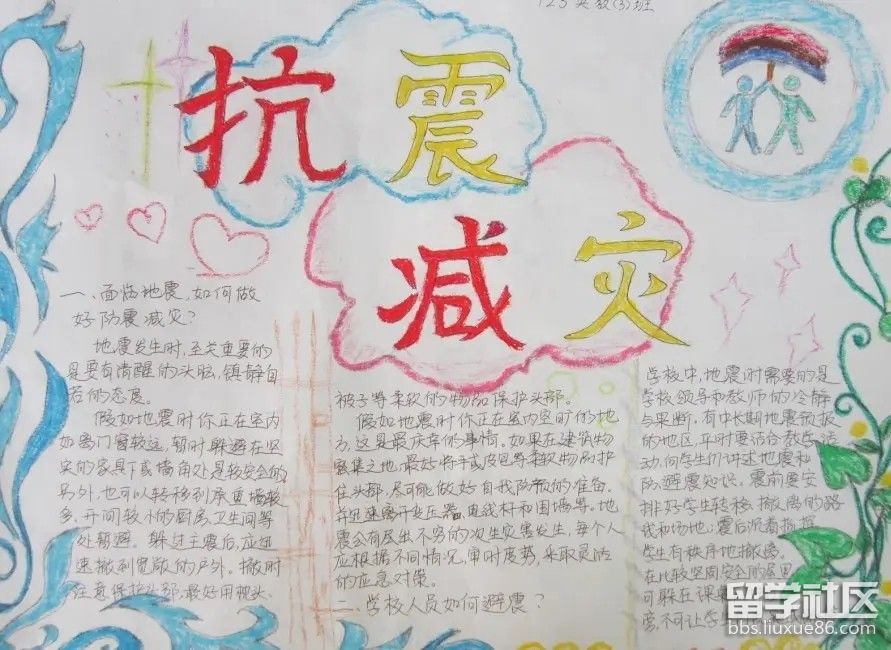 抗震
减灾
一、面临地震,如何做
好防震减灾?
地震发生时,至关重要的
是要有清醒的头脑,镇静自
若的态度。
假如地震时你正在室内
如离门窗较远,暂时躲避在坚
实的家具下或墙角处是较安全的
另外,也可以转移到承重墙较
多、开间较小的厨房、卫生间等
处暂避。躲过主震后,应迅
速撤到宽敞的户外。撤时
注意保护头部,最好用枕头、
被子等柔软的物品保护头部。
假如地震时你正在室内空旷的地
方,这是最庆幸的事情。如果在建筑物
密集之地,最好将手或皮包等柔软物品护
住头部,尽可能做好自我防御的准备。
并迅速离开变压器、电线杆和围墙等。地
震会有层出不穷的次生灾害发生,每个人
应根据不同情况,审时度势,采取灵活
的应急对策。
二、学校人员如何避震?
学校中,地震时需要的是
学校领导和教师的冷静
与果断。有中长期地震预报
的地区,平时要结合教学活
动,向学生们讲述地震和
防避震知识。震前要安
排好学生转移、撤离的路
线和场地;震后沉着指挥
学生有秩序地撤离。
在比较坚固安全的房屋
可躲在课
不可让学
留学社区
bbs.liuxue86.com